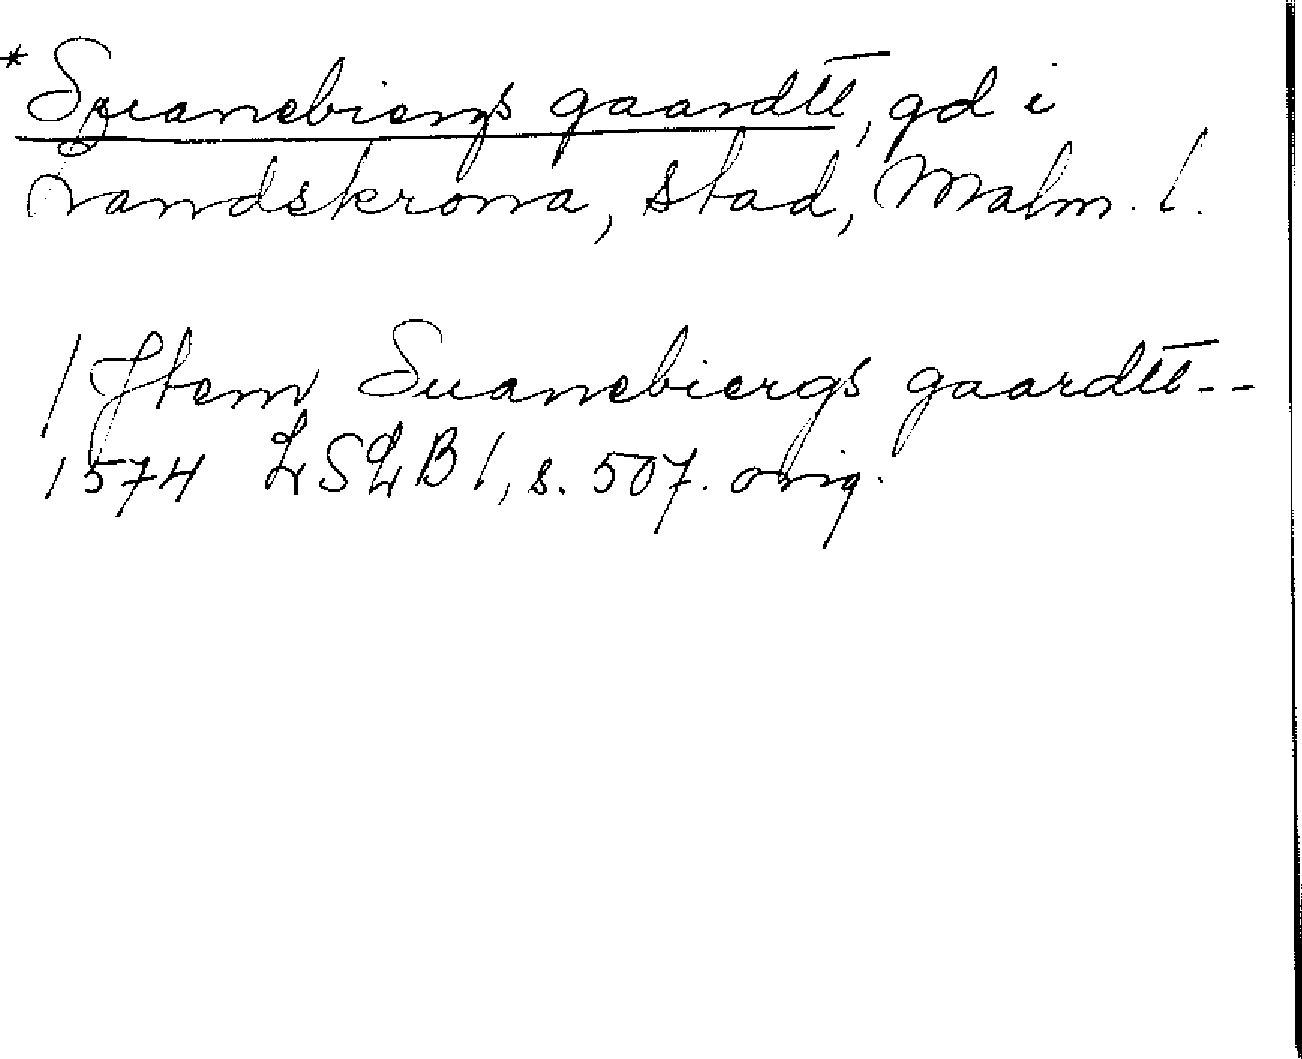 *Suanebiergs gaardtt̅, gd i
Landskrona, stad, Malm. l.
/Jtem Suanebiergs gaardtt̅--
1574 LSLB 1, s. 507. orig.